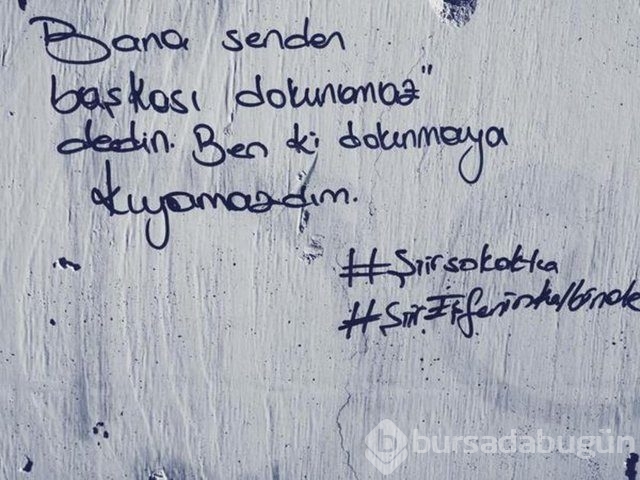 Bana senden
başkası dokunamaz"
dedin. Ben ki dokunmaya
kıyamazdım.
#şiirsokakta
bursadabugün